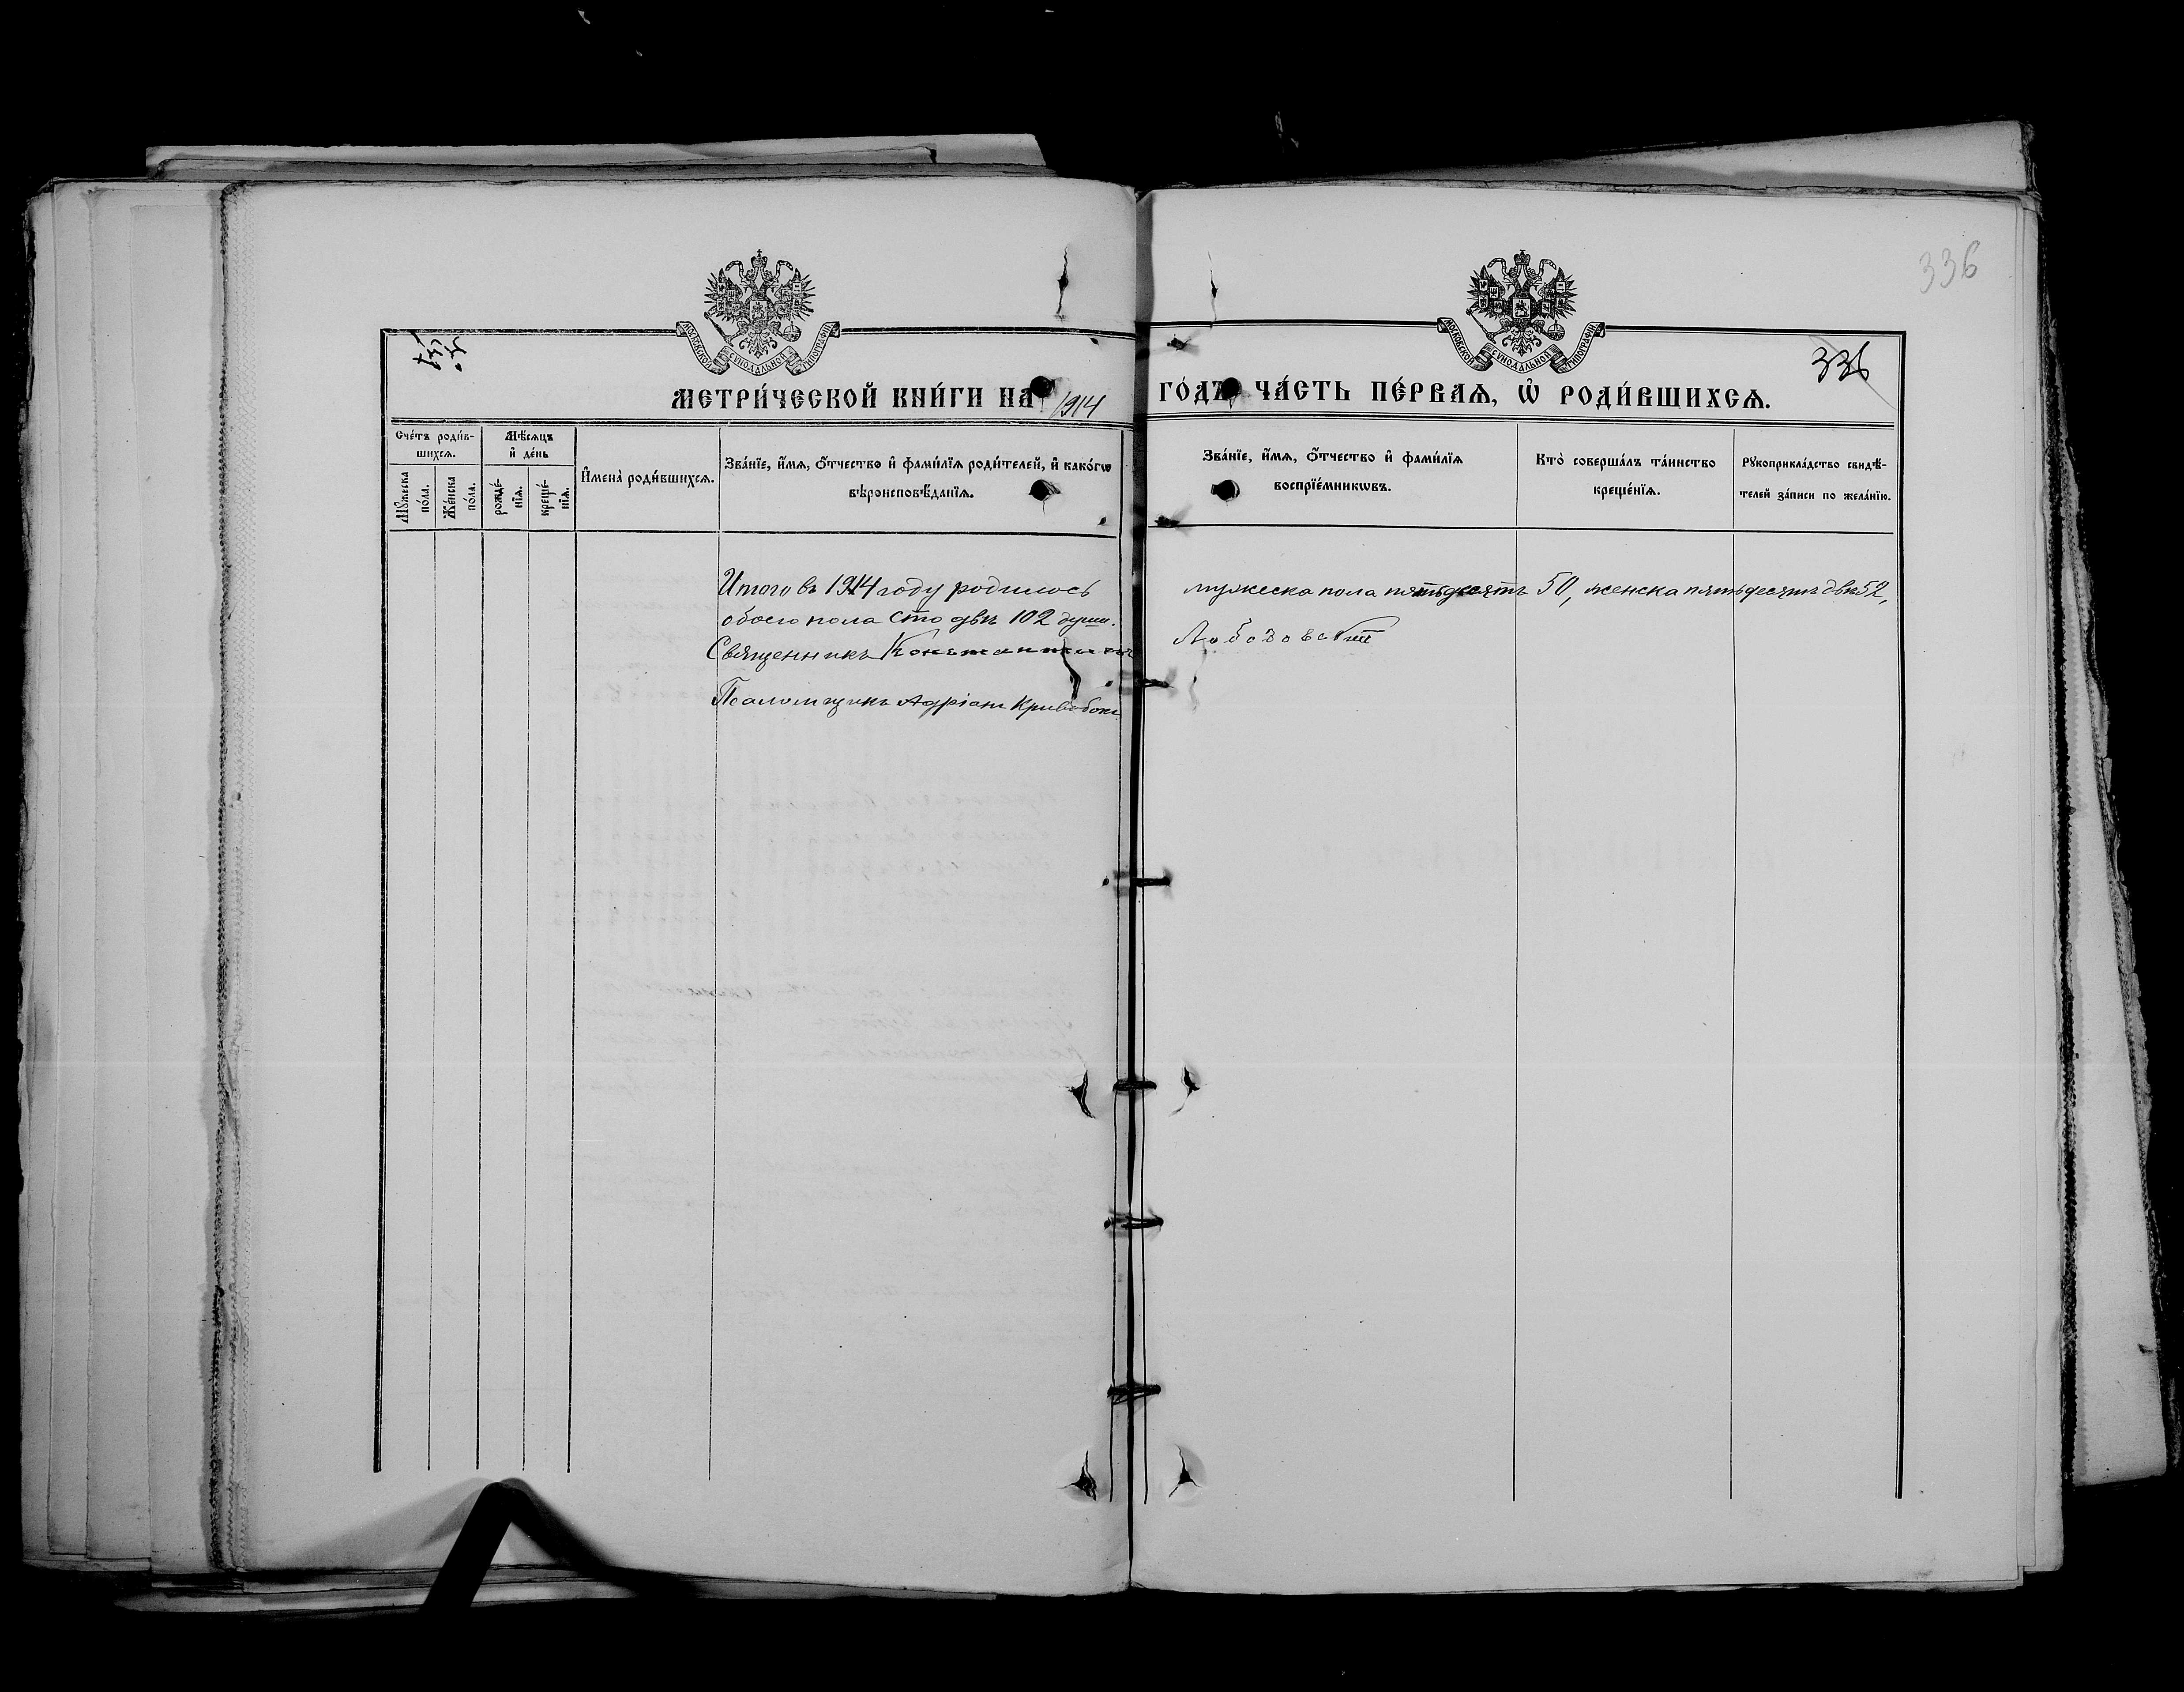 336
336
МОСКОВСКОЙ СѴНОДАЛЬНОЙ ТИПОГРАФІИ
МОСКОВСКОЙ СѴНОДАЛЬНОЙ ТИПОГРАФІИ
МЕТРИ́ЧЕСКОЙ КНИ́ГИ НА 1914 ГО́ДЪ ЧА́СТЬ ПЕ́РВАѦ, Ѡ҆ РОДИ́ВШИХСѦ.
Сче́тъ роди́в-
шихсѧ.
Мꙋ́жеска по́ла.
Же́нска по́ла.
Мѣ́сѧцъ
и҆ де́нь
рожде́-нїѧ.
креще́-нїѧ.
И҆мена̀ роди́вшихсѧ.
Зва́нїе, и҆́мѧ, ѻ҆́тчество и҆ фами́лїѧ роди́телей, и҆ како́гѡ
вѣроисповѣ́данїѧ.
Зва́нїе, и҆́мѧ, ѻ҆́тчество и҆ фами́лїѧ
воспрїе́мникѡвъ.
Кто̀ соверша́лъ та́инство
креще́нїѧ.
Рꙋкоприкла́дство свидѣ́-
телей за́писи по жела́нїю.
Итого въ 1914 году родилось
обоего пола сто двѣ 102 души.
Священникъ Константинъ
Псаломщикъ Адріанъ Кривобокъ
мужеска пола пятьдесятъ 50, женска пятьдесятъ двѣ 52,
Лободовскій